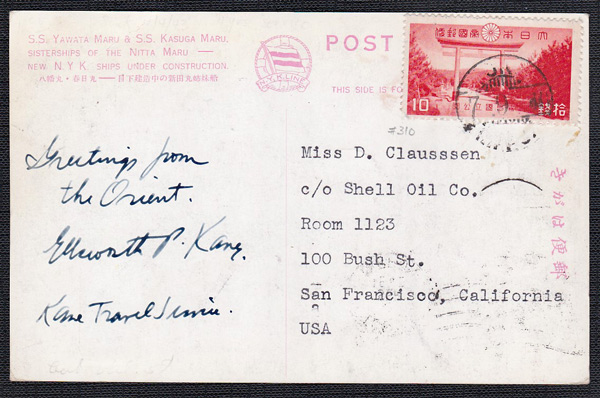 S.S. YAWATA MARU & S.S. KASUGA MARU,
SISTERSHIPS OF THE NITTA MARU —
NEW N.Y.K. SHIPS UNDER CONSTRUCTION.
姉妹船丸田新の中造建下目—丸日春・丸幡八
N.Y.K. LINE
POST
THIS SIDE IS FO
便郵國帝本日大
10
園公立國
錢拾
#310
Greetings from
the Orient.
Ellsworth P. Kane.
Kane Travel Service.
Miss D. Clausssen
c/o Shell Oil Co.
Room 1123
100 Bush St.
San Francisco, California
USA
きがは便郵